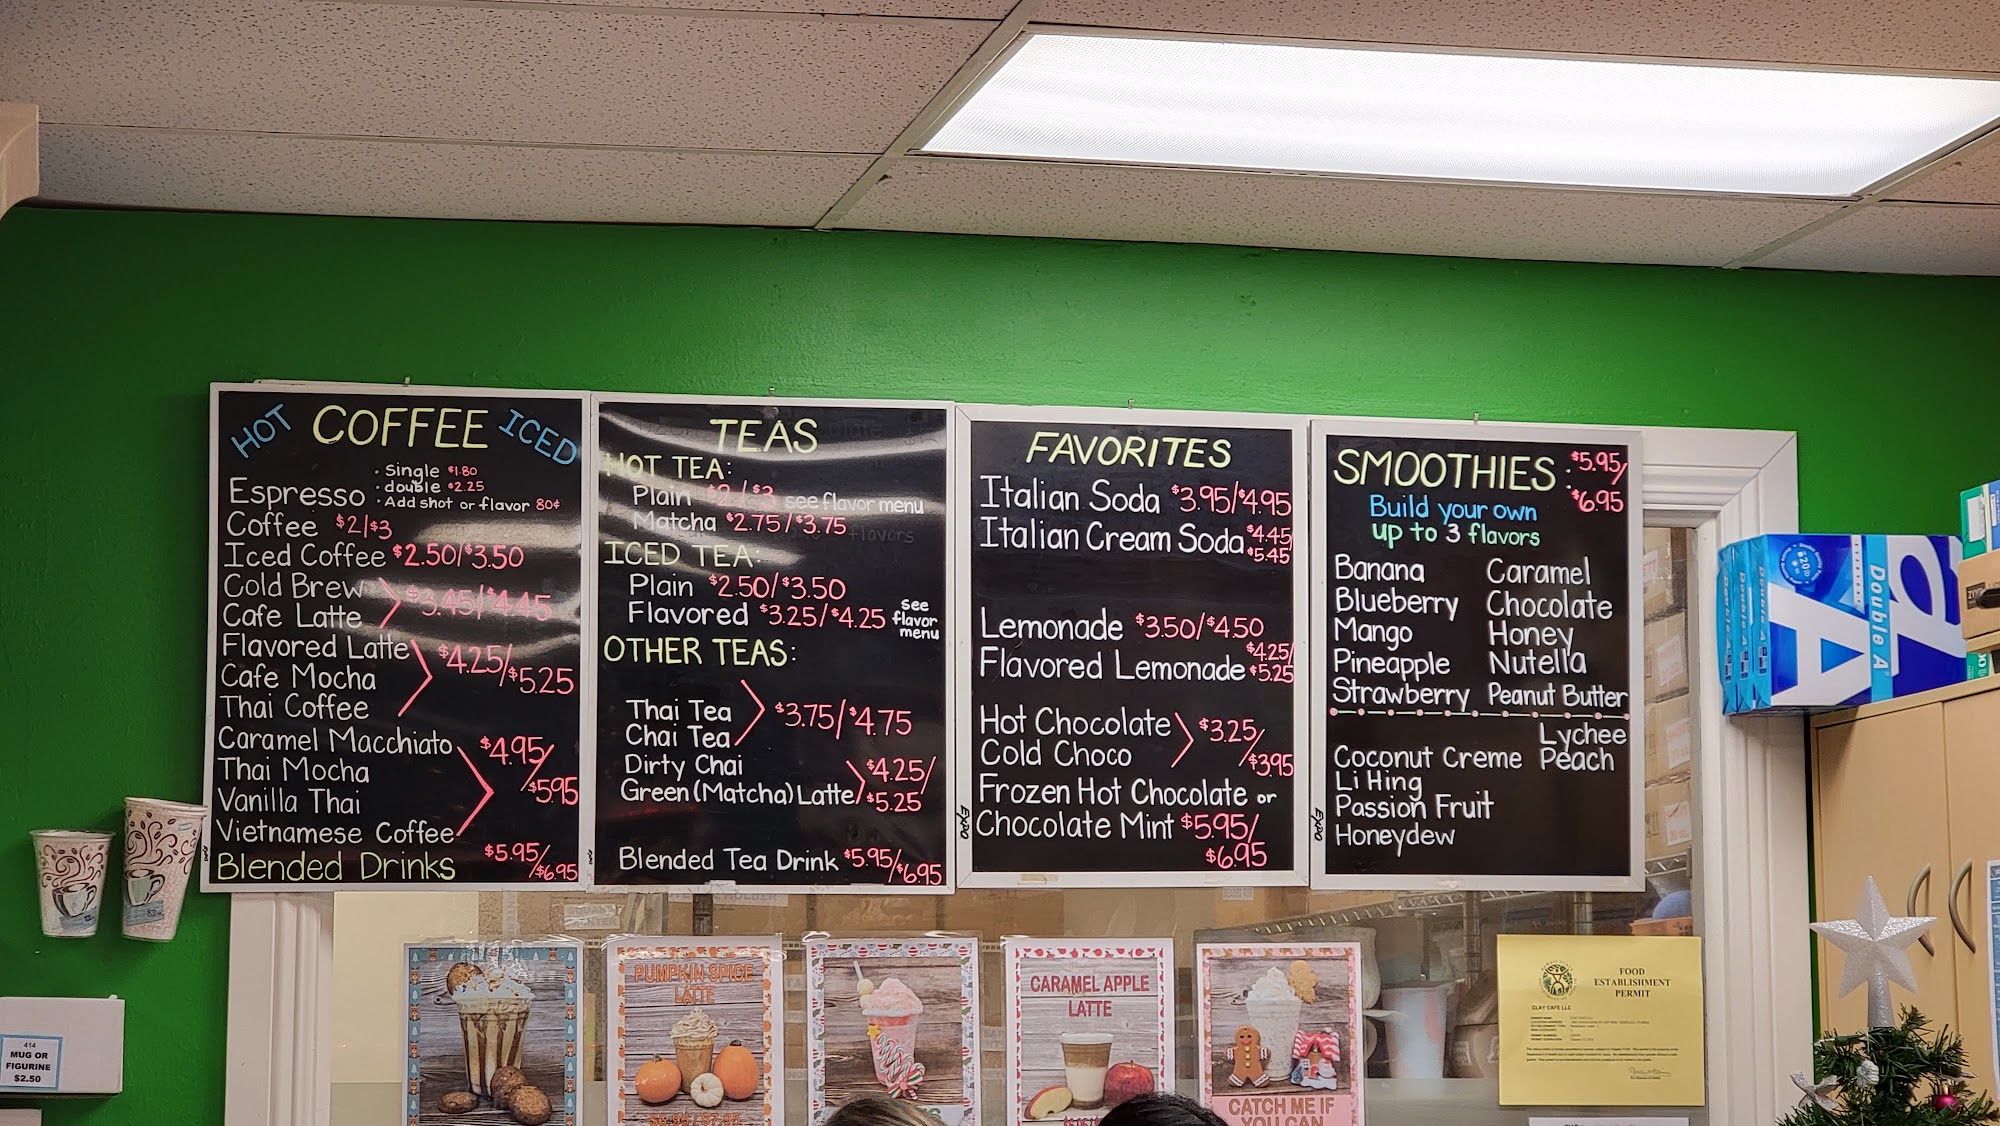 HOT COFFEE ICED
Espresso
· Single $1.80
· double $2.25
· Add shot or flavor 80¢
Coffee $2/$3
Iced Coffee $2.50/$3.50
Cold Brew
Cafe Latte
$3.45/$4.45
Flavored Latte
Cafe Mocha
Thai Coffee
$4.25/$5.25
Caramel Macchiato
Thai Mocha
Vanilla Thai
Vietnamese Coffee
$4.95/$5.95
Blended Drinks $5.95/$6.95
TEAS
HOT TEA:
Plain $2/$3 see flavor menu
Matcha $2.75/$3.75
flavors
ICED TEA:
Plain $2.50/$3.50
Flavored $3.25/$4.25 see flavor menu
OTHER TEAS:
Thai Tea
Chai Tea
$3.75/$4.75
Dirty Chai
Green (Matcha) Latte
$4.25/$5.25
Blended Tea Drink $5.95/$6.95
FAVORITES
Italian Soda $3.95/$4.95
Italian Cream Soda $4.45
$5.45
Lemonade $3.50/$4.50
Flavored Lemonade $4.25/$5.25
Hot Chocolate
Cold Choco
$3.25/$3.95
Frozen Hot Chocolate or
Chocolate Mint $5.95/
$6.95
EXPO
SMOOTHIES: $5.95/
$6.95
Build your own
up to 3 flavors
Banana
Blueberry
Mango
Pineapple
Strawberry
Caramel
Chocolate
Honey
Nutella
Peanut Butter
Lychee
Coconut Creme Peach
Li Hing
Passion Fruit
Honeydew
EXPO
Double A
A
414
MUG OR
FIGURINE
$2.50
PUMPKIN SPICE
LATTE
$6.95/$7.95
CARAMEL APPLE
LATTE
CATCH ME IF
YOU CAN
FOOD
ESTABLISHMENT
PERMIT
CLAY CAFE LLC